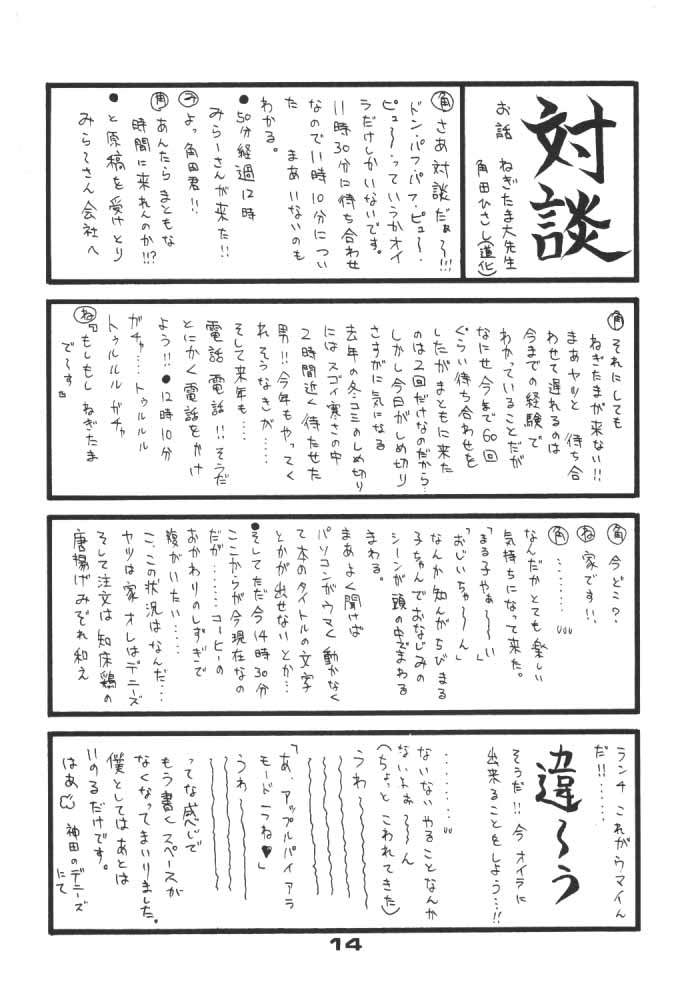 対談
お話 ねぎたま大先生
角田ひさし(道化)
角 さあ 対談だぁ〜!!!
ドン・パフ・パフ・ピュー・
ピュ〜〜・っていうかオイ
ラだけしかいないです。
11時30分に待ち合わせ
なので11時10分につい
た まあいないのも
わかる。
●50分経過12時
みらーさんが来た!!
み よっ角田君!!
角 あんたらまともな
時間に来れんのか!!?
●と原稿を受けとり
みら〜さん会社へ
角 それにしても
ねぎたまが来ない!!
まあヤツと 待ち合
わせて遅れるのは
今までの経験で
わかっていることだが
なにせ今まで60回
ぐらい待ち合わせを
したがまともに来た
のは2回だけなのだから…
しかし今日がしめ切り
さすがに気になる
去年の冬コミのしめ切り
にはスゴイ寒さの中
2時間近く待たせた
男!!今年もやってく
れそうなきが……
そして来年も……
電話電話!!そうだ
とにかく電話をかけ
よう!!●12時10分
ガチャ…トゥルルル
トゥルルルルガチャ
ね「もしもし ねぎたま
で〜す」
角 今どこ?
ね 家です!!
角 ………
なんだかとても楽しい
気持ちになって来た。
「まる子やぁ〜〜い」
「おじいちゃ〜〜ん」
なんか知んがちびまる
子ちゃんでおなじみの
シーンが頭の中でまわる
まわる。
まあよく聞けば
パソコンがウマく動かなく
て本のタイトルの文字
とかが出せないとか…
●そしてただ今14時30分
ここからが今現在なの
だが………コーヒーの
おかわりのしすぎで
腹がいたい……
こ、この状況はなんだ…
ヤツは家 オレはデニーズ
そして注文は知床鶏の
唐揚げみぞれ和え
ランチ これがウマイん
だ!!……
違〜う
そうだ!!今オイラに
出来ることをしよう…!!
………
ないないやることなんか
ないよぉ〜〜ん
(ちょっとこわれてきた)
うわ〜
「あ、アップルパイアラ
モード一つね♥」
うわ〜
ってな感じで
もう書くスペースが
なくなってまいりました。
僕としてはあとは
いのるだけです。
はあ 神田のデニーズ
にて
14